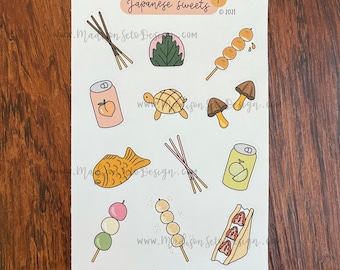 Japanese Sweets
© 2021
www.MadisonSetoDesign.com
www.MadisonSetoDesign.com
www.MadisonSetoDesign.com